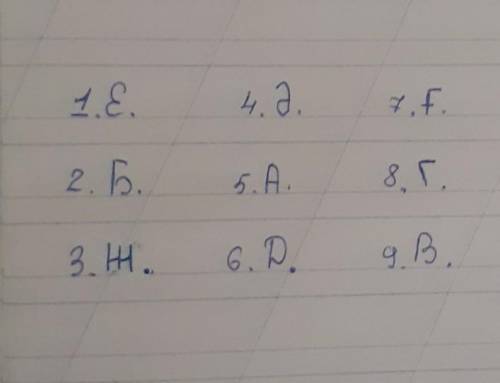 1. Е. 4. Ә. 7. Ғ.
2. Б. 5. А. 8. Г.
3. Ж. 6. Д. 9. В.